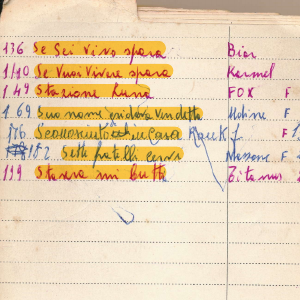 136 Se Sei Vivo spara Bior
1/40 Se Vuoi Vivere spara Karmel
149 Stazione Luna FOX F
169 Suo nome gridava Vendetta F
176 Sconosciuto in Casa Rank F 1
182 Sette fratelli cervi F
199 Stasera mi butto Titanus